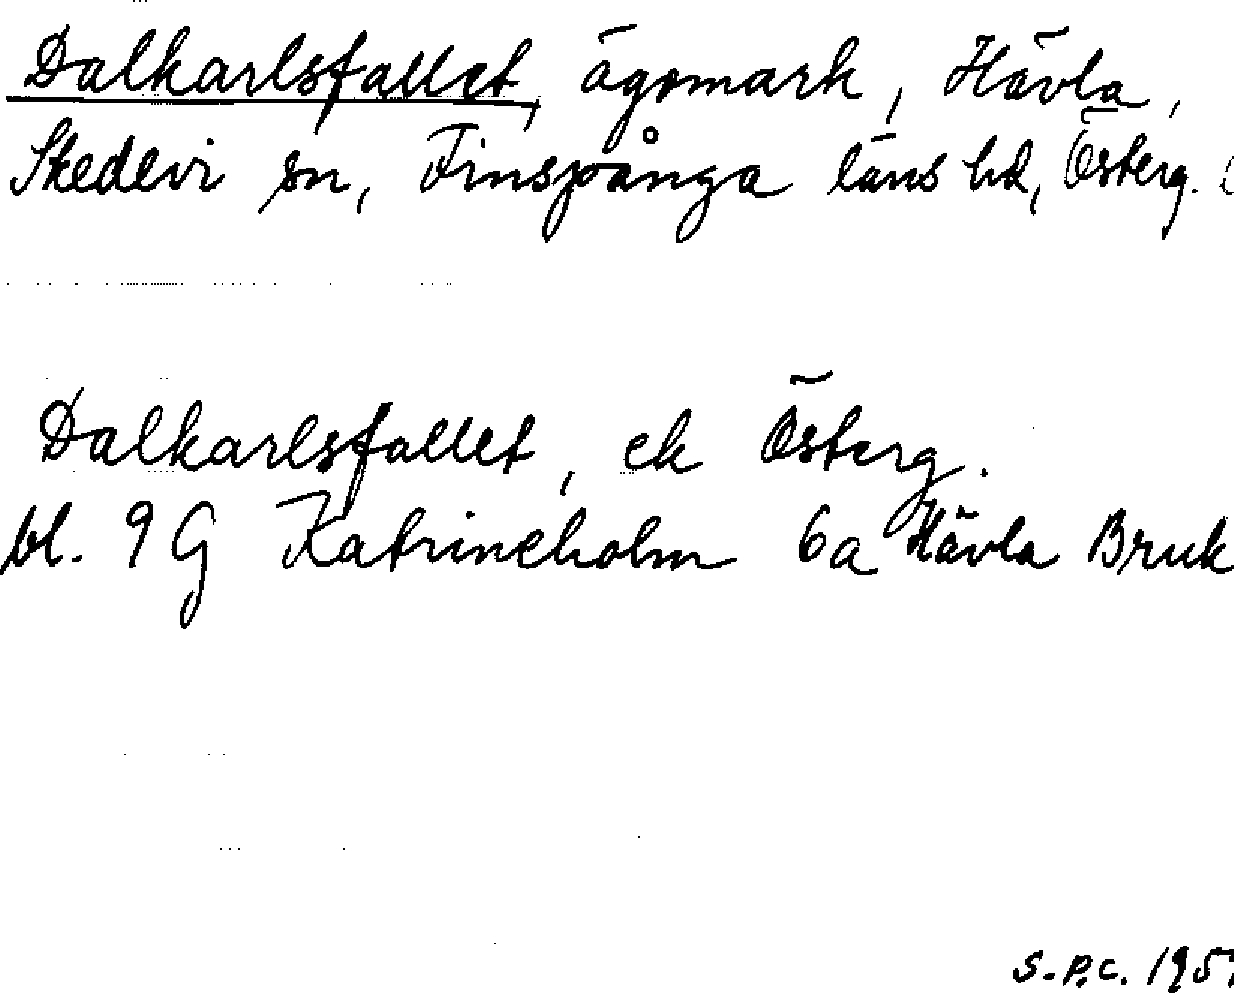 Dalkarlsfallet, ägomark, Hävla,
Skedevi sn, Finspånga läns hd, Österg.
Dalkarlsfallet, ek Österg.
bl. 9G Katrineholm 6a Hävla Bruk
S.P.C.